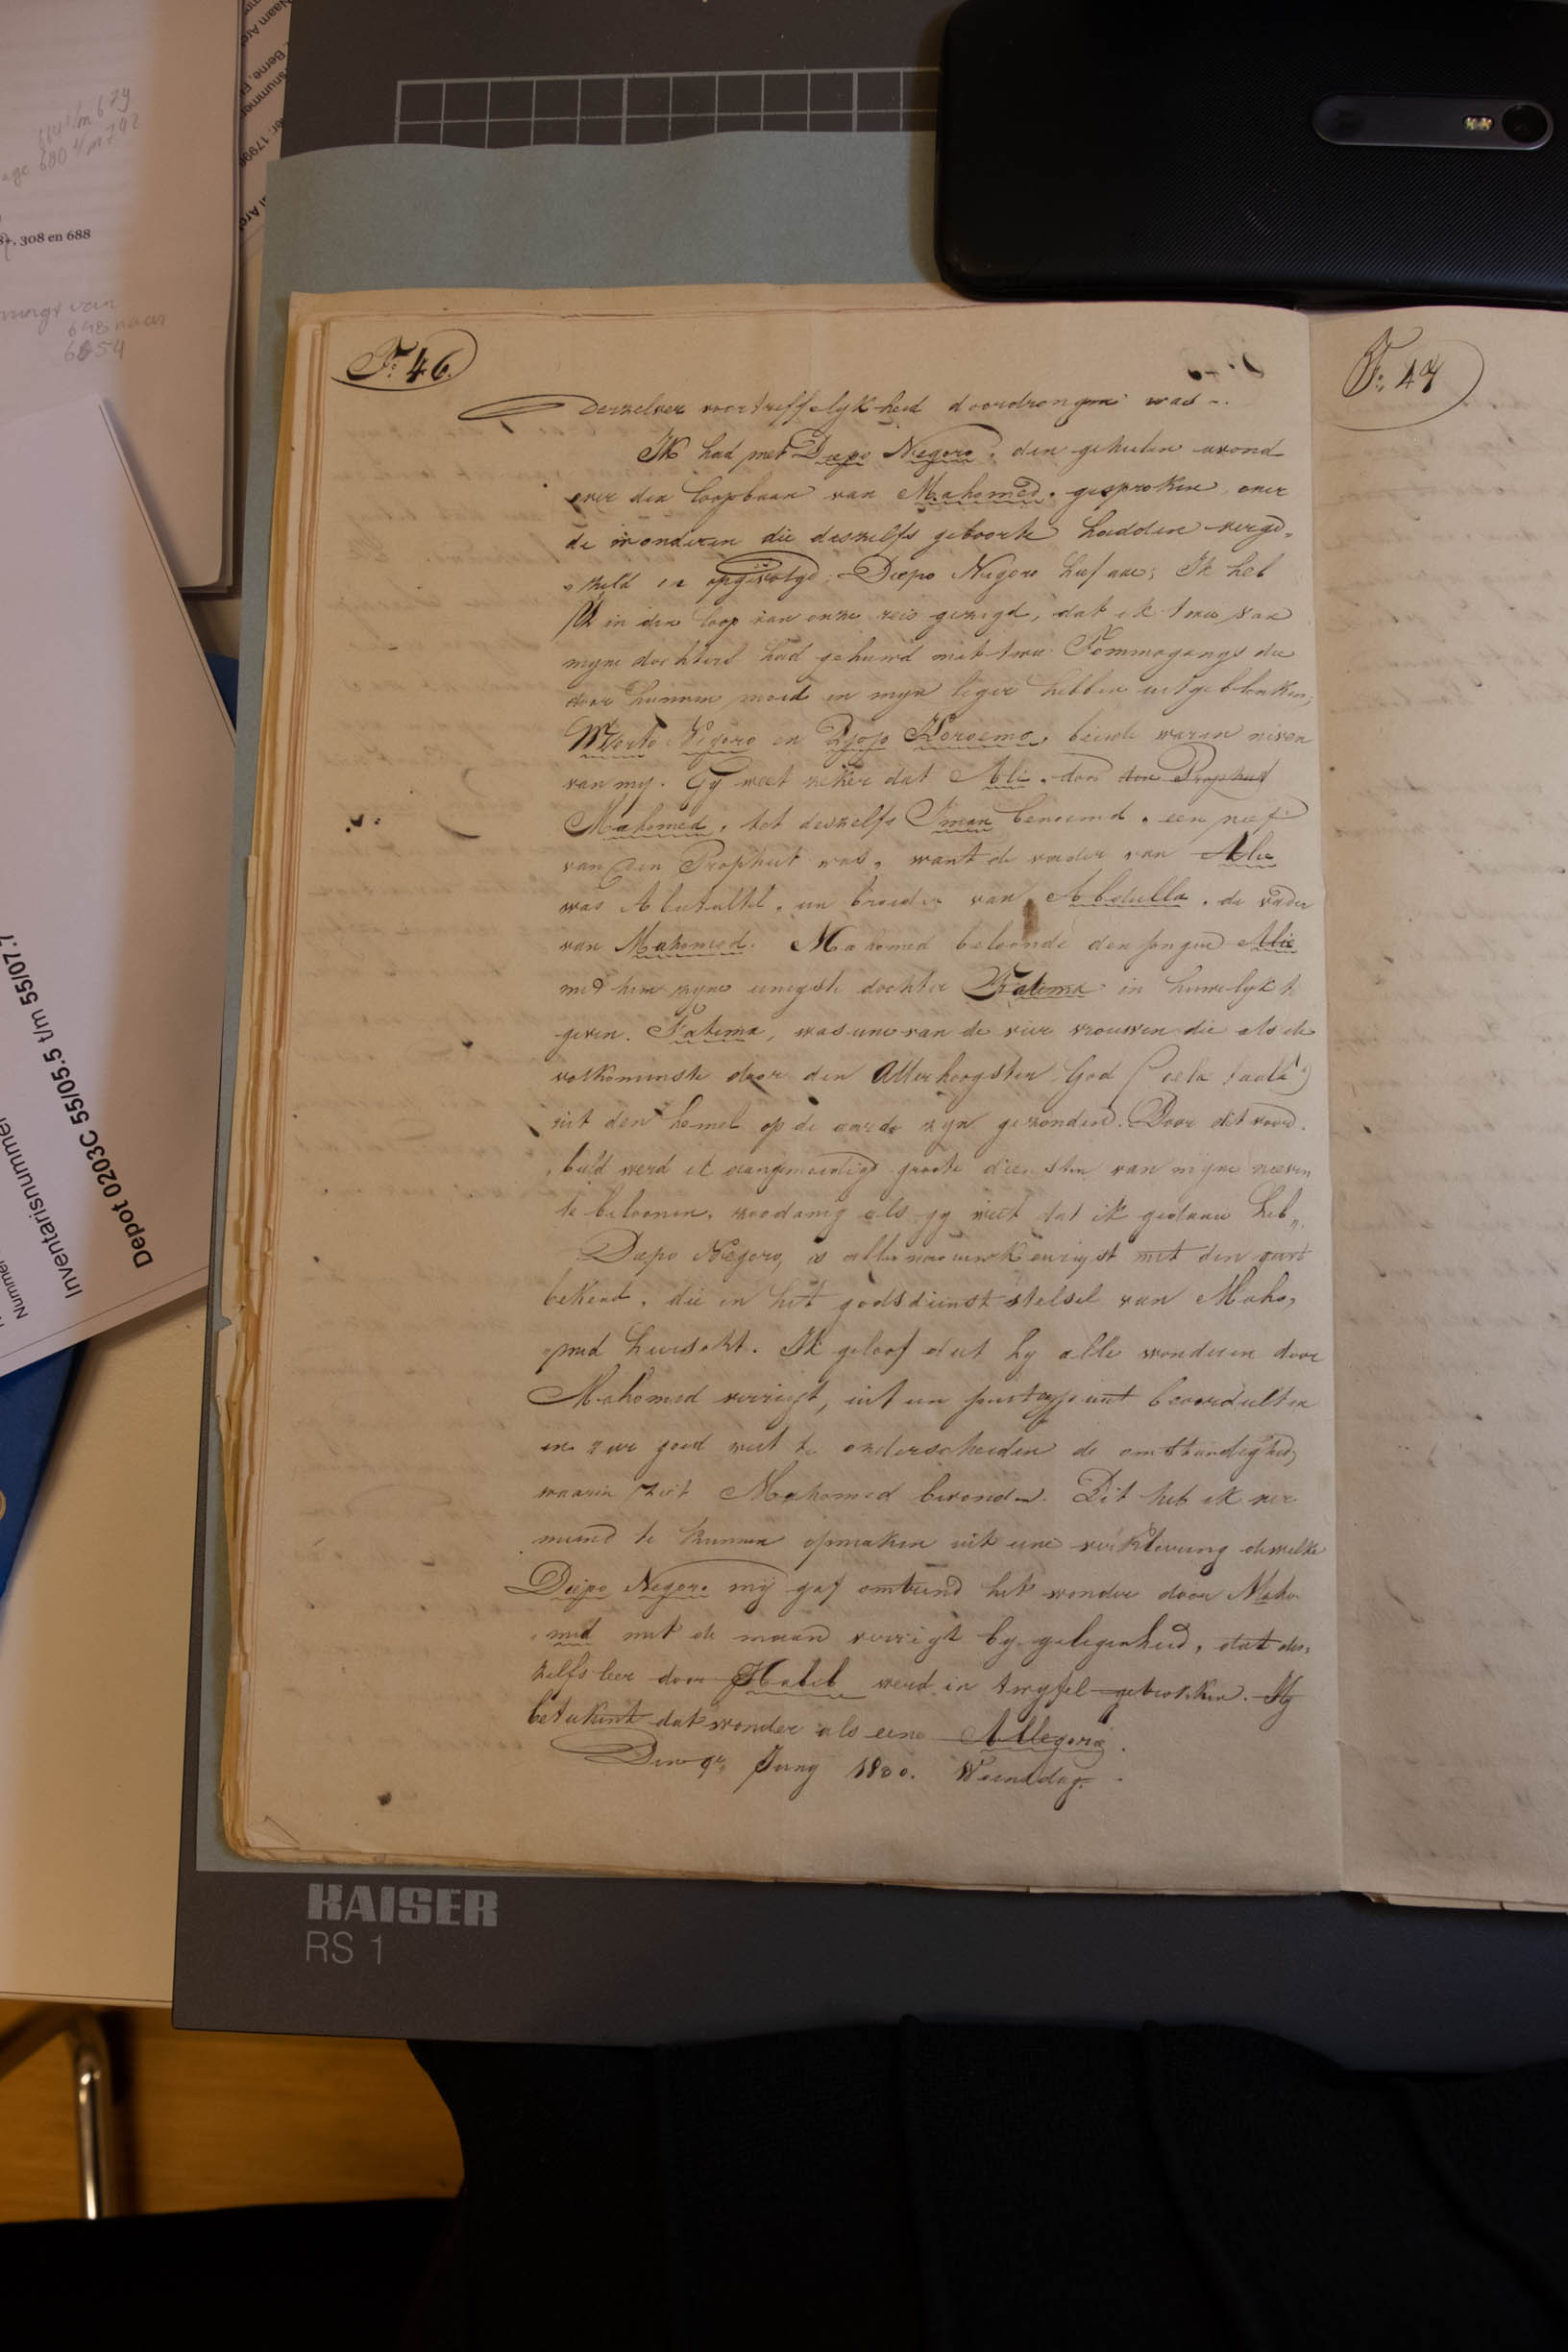 F: 46.
derzelver voortreffelykheid doordrongen was -.
Ik had met Diepo Negoro, den geheelen avond
over den loopbaan van Mahomed. gesproken, over
de wonderen die deszelfs geboorte hadden verge,
,zeld en opgevolgd. Diepo Negoro hief aan; Ik heb
U in den loop van onze reis gezegd, dat ik twee van
myne dochters had gehuwd met twee Tommogangs die
door hunnen moed in myn leger hebben uitgeblonken;
Merto Negoro en Djojo Keroemo, beiede waren neven
van my. Gy weet zeker dat Ali. door den Propheet
Mahomed, tot deszelfs Iman benoemd, een neef
van den Propheet was, want de vader van Alie
was Abutaltel, een broeder van Abdulla, de vader
van Mahomed. Mahomed beloonde den jongen Alie
met hem zyne eenigste dochter Fatima in huwelyk te
geven. Fatima, was eene van de vier vrouwen die als de
volkomenste door den Allerhoogsten God (oela taala)
uit den hemel op de aarde zyn gezonden. Door dit voor,
,beeld werd ik aangemoedigd groote diensten van myne neeven
te beloonen, zoodanig als gy weet dat ik gedaan heb„
Diepo Negoro, is allernaauwkeurigst met den geest
bekend, die in het godsdienst stelsel van Maho,
,med heerscht. Ik geloof dat hy alle wonderen door
Mahomed verrigt, uit een juist oogpunt beoordeelten
en zeer goed weet te onderscheiden de omstandighed,
waarin zich Mahomed bevonden. Dit heb ik ver
meend te kunnen opmaken uit eene verklaring dewelke
Diepo Negoro mij gaf omtrend het wonder door Maho
,med met de maan verrigt by gelegenheid, dat des,
zelfs leer door Habib werd in twyfel getrokken. Hy
betekent dat wonder als eene Allegorie.
Den 9e Juny 1830. Woensdag.
F: 47
308 en 688
Inventarisnummer
Depot 0203C 55/05.5 t/m 55/07.7
KAISER
RS 1